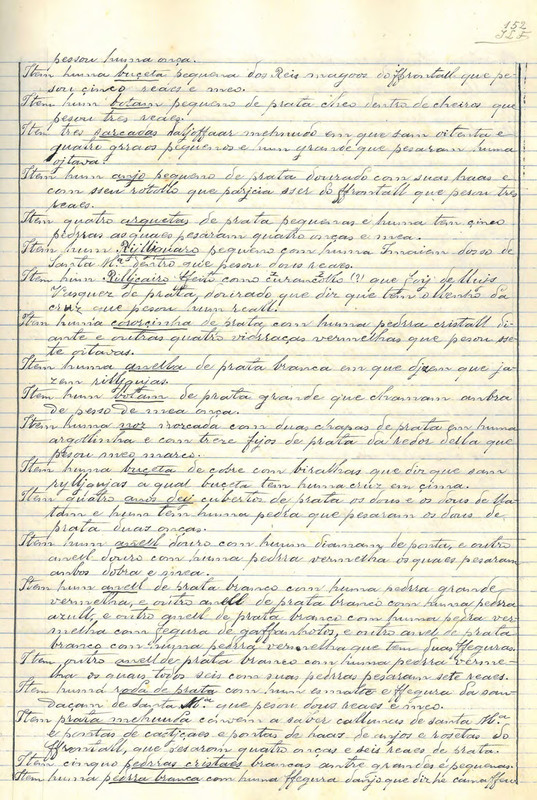 152
pessou huma onça.
Item huma buçeta pequena dos Reis magoos do ffrontall que pe-
sou çinco reaes e meo.
Item hum botam pequeno de prata cheo dentro de cheiros que
pesou tres reaes.
Item tres sarcadas daljoffaar mehnudo em que sam oitenta e
quatro grraos pequenos e hum grande que pesaram huma
ojtava.
Item hum anjo pequeno de prata dourado com suas haas e
com sseu rotollo que parjcia sser do ffrontall que pesou tres
reaes.
Item quatro arquetas de prata pequenas e huma tem çinco
pedrras as quaes pesaram quatro onças e mea.
Item hum pequeno com huma Imaiem dosso de
Santa Mª dentro que pesou dous reaes.
Item hum feito como (?) que foij de
Vasquez de prata, dourado que diz que tem o lenho da
cruz que pesou hum reall.
Item huma de prata com huma pedrra cristall di-
ante e outras quatro vidrraças vermelhas que pesou sse-
te oitavas.
Item huma anelha de prata branca em que djzem que ja-
zem rilliquijas.
Item hum botam de prata grande que chamam ambra
de pesso de mea onça.
Item huma noz norcada com duas chapas de prata em huma
argollinha e com treze fijos de prata da redor della que
pesou meo marco.
Item huma buçeta de cobre com que diz que sam
a qual buçeta tem huma cruz em çima.
Item quatro cubertos de prata os dous e os dous de lla-
tam e hum tem huma pedra que pesaram os dous de
prata duas onças.
Item hum anell douro com huum diamam de ponta, e outro
anell douro com huma pedrra vermelha os quaes pesaram
ambos dobra e mea.
Item hum anell de prata branco com huma pedrra grande
vermelha, e outro anell de prata branco com huma pedrra
azull, e outro anell de prata branco com huma pedra ver-
melha com ffegura de gaffanhoto, e outro anel de prata
branco com huma pedrra vermelha que tem duas ffeguras.
Item outro anell de prata branco com huma pedrra verme-
lha os quaes todos seis com suas pedras pesaram sete reaes.
Item huma roda de prata com hum esmalte e ffegura da sau-
daçam de santa Mª que pesou dous reaes e meo.
Item prata mehuuda convem a saber collunas de santa Mª
e pontas de castiçaes e pontas de haas de anjos e rosetas do
ffrontall, que pesaram quatro onças e seis reaes de prata.
Item cinquo pedrras cristaes brancas antre grandes e pequenas.
Item huma pedrra branca com huma ffegura danjo que diz he camaffeu